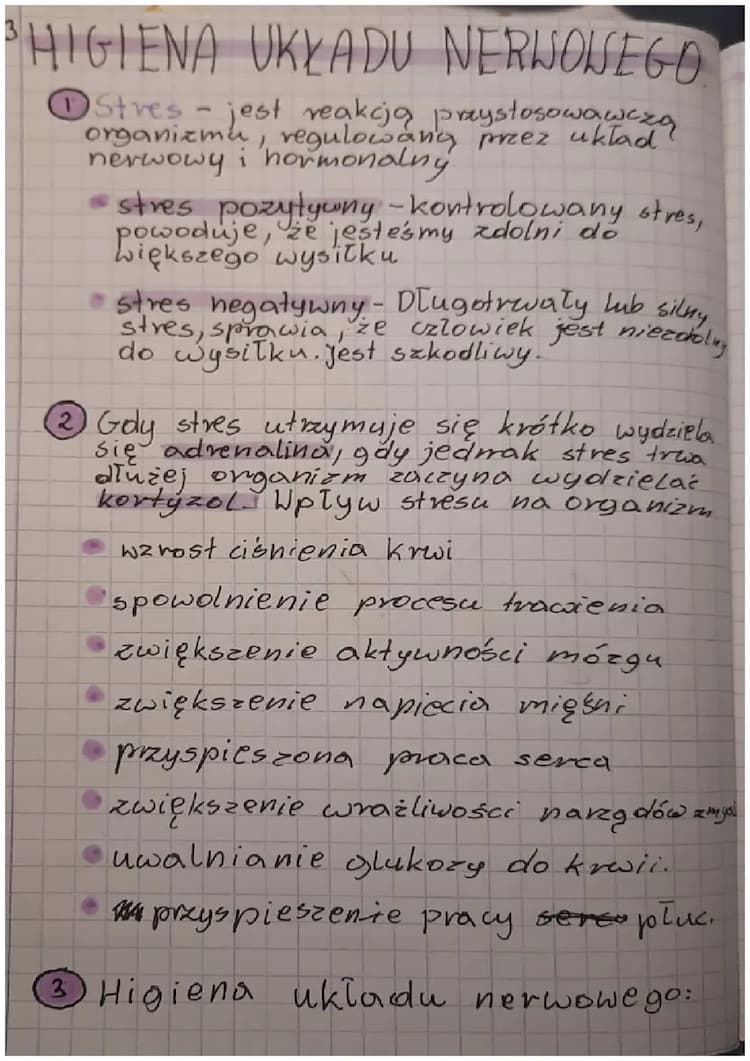 3
HIGIENA UKŁADU NERWOWEGO
1 Stres - jest reakcją przystosowawczą
organizmu, regulowaną przez układ
nerwowy i hormonalny
stres pozytywny - kontrolowany stres,
powoduje, że jesteśmy zdolni do
większego wysiłku
stres negatywny - Długotrwały lub silny
stres, sprawia, że człowiek jest niezdolny
do wysiłku. jest szkodliwy.
2 Gdy stres utrzymuje się krótko wydziela
się adrenalina, gdy jednak stres trwa
dłużej organizm zaczyna wydzielać
kortyzol. Wpływ stresu na organizm
wzrost ciśnienia krwi
spowolnienie procesu trawienia
zwiększenie aktywności mózgu
zwiększenie napięcia mięśni
przyspieszona praca serca
zwiększenie wrażliwości narządów
uwalnianie glukozy do krwii.
przyspieszenie pracy płuc.
3 Higiena układu nerwowego: